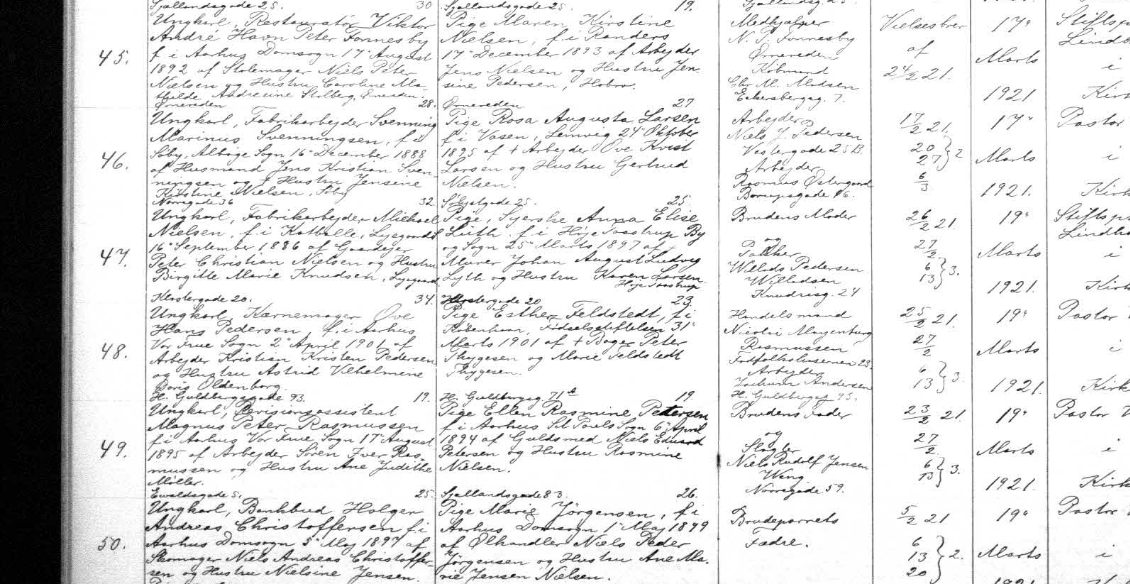 Sjællandsgade 25. 30 Sjællandsgade 25. 19.
45.
Ungkarl, Restauratør Viktor
André Haven Peter Fonnesby
f. i Aarhus Domsogn 17 August
1892 af Stolemager Niels Peter
Nielsen og Hustru Caroline Ma-
thilde Andreine
Pige Maren Kirstine
Nielsen, f. i Randers
17 December 1893 af Arbejder
Jens Nielsen og Hustru Jen-
sine Pedersen, Hobro.
Medhjælper
N. P. Fonnesby
Ørnereden
Købmand
Chr. M. Madsen
Eckersbergsg. 7.
Vielsesbrev
af
24/2 21.
17de
Marts
1921
i
Kirk
Ørnereden 28. Ørnereden 27
46.
Ungkarl, Fabrikarbejder Svenning
Marinus Svenningsen, f. i
Soby, Albøge Sogn 16 December 1888
af Husmand Jens Kristian Sven-
ningsen og Hustru Jensine
Kirstine Nielsen, Soby
Pige Rosa Augusta Larsen
f. i Vasen, Lemvig 24 Oktober
1895 af † Arbejder Ove Krist
Larsen og Hustru Gertrud
Nielsen.
Arbejder
Niels J. Pedersen
Vestergade 25B.
Arbejder
Rasmus Østergaard
17/2 21.
20/27 } 2
6/3
17de
Marts
1921.
Pastor
i
Kirk
Norregade 36 32. 25.
47.
Ungkarl, Fabrikarbejder Michael
Nielsen, f. i Kathalle, Lyngaard
16 September 1886 af Gaardejer
Peter Christian Nielsen og Hustru
Birgitte Marie Knudsen,
Pige, Syerske Anna Elise
Lyth, f. i Høje Taastrup By
og Sogn 25 Marts 1897 af
Murer Johan August Ludvig
Lyth og Hustru Karen Larsen
Høje Taastrup
Brudens Moder
og
Pakker
Willads Pedersen
Willadsen
Knudrisg. 24
26/2 21.
27/2
6/13 } 3.
19de
Marts
1921.
i
Kirk
Klostergade 20. 34. Klostergade 20 23
48.
Ungkarl, Karnemager Ove
Hans Pedersen, f. i Aarhus
Vor Frue Sogn 2 April 1901 af
Arbejder Kristian Kristen Pedersen
og Hustru Astrid Vilhelmine
Doris Oldenborg.
Pige Esther Feldstedt, f. i
København, Fødselsstiftelsen 31
Marts 1901 af † Bager Peter
Thygesen og Marie Feldstedt
Thygesen.
Handelsmand
Nicolai Magenburg
Rasmussen
Arbejder
Jochum Andersen
H. Guldbergsg. 93.
25/2 21.
27/2
6/13 } 3.
19de
Marts
1921.
Pastor
i
Kirk
H. Guldbergsgade 93. 19. H. Guldbergsg. 71 19
49.
Ungkarl,
Magnus Peter Rasmussen
f. i Aarhus Vor Frue Sogn 17 August
1895 af Arbejder Sören Iver Ras-
mussen og Hustru Ane Judithe
Möller.
Pige Ellen Rasmine Petersen
f. i Aarhus Sct Pouls Sogn 6 April
1894 af Guldsmed Niels Eduard
Petersen og Hustru Rasmine
Nielsen.
Brudens Fader
og
Slagter
Niels Rudolf Jensen
Weng
Norregade 59.
23/2 21
27/2
6/13 } 3.
19de
Marts
1921.
Pastor
i
Kirk
Ewaldsgade 5. 25. Sjællandsgade 83. 26.
50.
Ungkarl, Bankbud Holger
Andreas Christoffersen f. i
Aarhus Domsogn 5 Maj 1897 af
Skomager Niels Andreas Christoffer-
sen og Hustru Nielsine Jensen.
Pige Marie Jörgensen, f. i
Aarhus Domsogn 1 Maj 1899
af Ølhandler Niels Peder
Jörgensen og Hustru Ane Ma-
rie Jensen Nielsen.
Brudeparrets
Fædre.
5/2 21
6
13 } 2.
20
19de
Marts
1921
Pastor
i